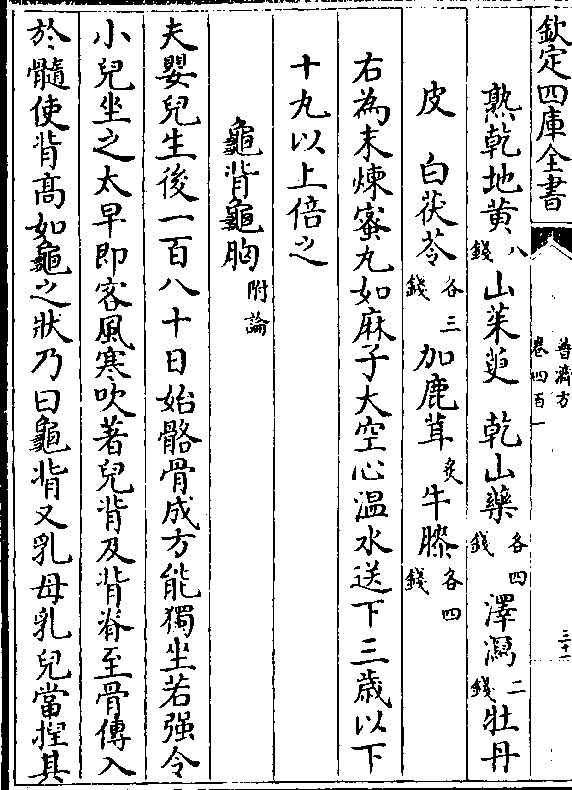 欽定四庫全書
普濟方
卷四百一
三十一
熟乾地黄八錢山茱萸 乾山藥各四錢澤瀉二錢牡丹
皮 白茯苓各三錢加鹿茸炙牛膝各四錢
右為末煉蜜丸如麻子大空心温水送下三歳以下
十丸以上倍之
龜背龜胸附論
夫嬰兒生後一百八十日始骼骨成方能獨坐若强令
小兒坐之太早即客風寒吹著兒背及背脊至骨傳入
於髓使背高如龜之狀乃曰龜背又乳母乳兒當揑其